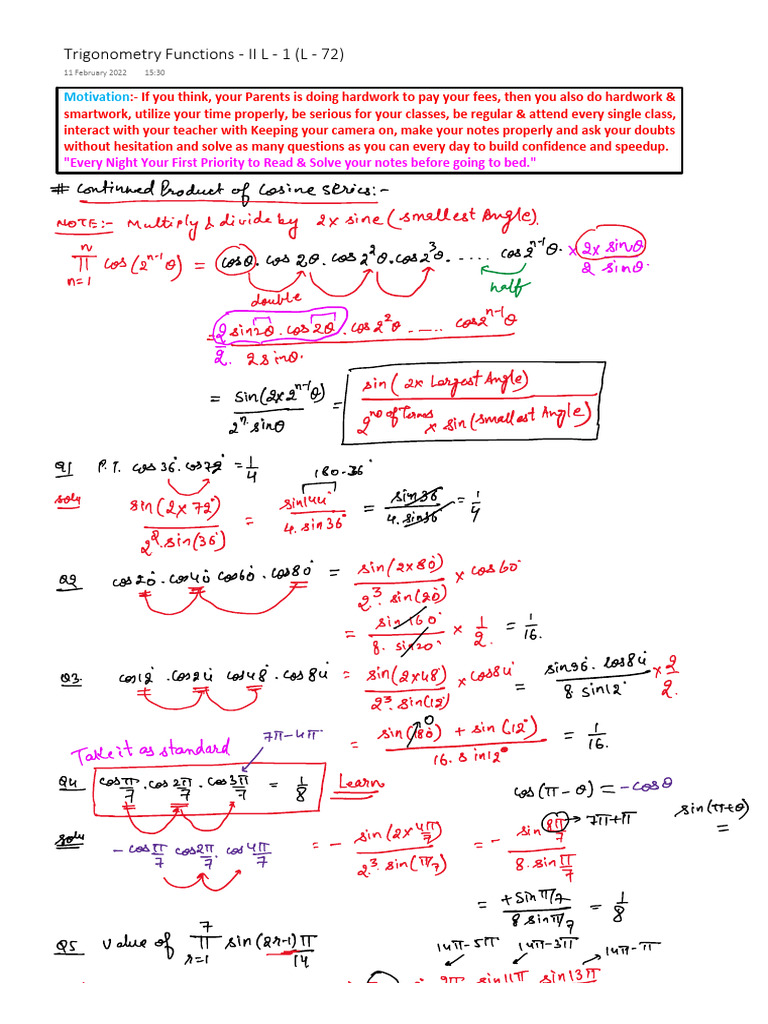 Trigonometry Functions - II L - 1 (L - 72)
11 February 2022 15:30
Motivation:- If you think, your Parents is doing hardwork to pay your fees, then you also do hardwork &
smartwork, utilize your time properly, be serious for your classes, be regular & attend every single class,
interact with your teacher with Keeping your camera on, make your notes properly and ask your doubts
without hesitation and solve as many questions as you can every day to build confidence and speedup.
"Every Night Your First Priority to Read & Solve your notes before going to bed."
# Continued Product of Cosine series:-
NOTE:- Multiply & divide by 2 x sine (smallest Angle).
n Π n=1 cos(2ⁿ⁻¹θ) = cosθ. cos 2θ. cos 2²θ. cos2³θ. ..... cos2ⁿ⁻¹θ. × 2x sinθ / 2 sinθ.
double half
= 2/2. sin2θ. cos2θ. cos2²θ. ..... cos2ⁿ⁻¹θ / 2sinθ.
= sin(2x2ⁿ⁻¹θ) / 2ⁿ. sinθ = sin( 2x Largest Angle) / 2^no of Terms x sin(smallest Angle)
Q1 P.T. cos36°. cos72° = 1/4 180-36°
soln sin(2x 72°) / 2². sin(36°) = sin144° / 4. sin36° = sin36 / 4. sin36 = 1/4
Q2 cos20°. cos40° cos60°. cos80° = sin(2x80°) / 2³. sin(20°) x cos60°
= sin160° / 8. sin20° x 1/2. = 1/16.
Q3. cos12° . cos24° cos48° . cos84° = sin(2x48°) / 2³. sin(12°) x cos84° = sin96°. cos84° / 8 sin12° x 2/2.
= sin(180°) 0 + sin(12°) / 16. sin12° = 1/16.
Take it as standard 7π-4π
Q4 cosπ/7 . cos2π/7 . cos3π/7 = 1/8 Learn
cos(π-θ) = -cosθ sin(π+θ) =
soln - cosπ/7 cos2π/7 . cos4π/7 = - sin(2x 4π/7) / 2³. sin(π/7) = - sin 8π/7 / 8. sinπ/7 → 7π+π
= + sinπ/7 / 8 sinπ/7 = 1/8
Q5 value of 7 Π r=1 sin(2r-1)π / 14
14π-5π 14π-3π 14π-π
9π sin11π sin13π